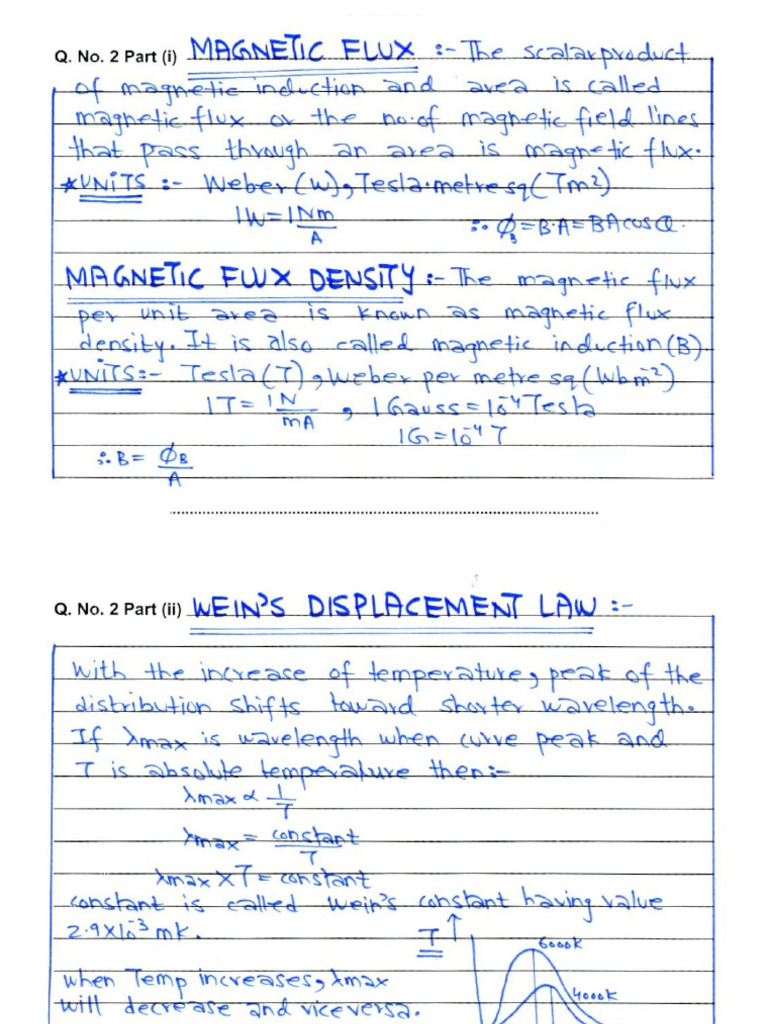 Q. No. 2 Part (i) MAGNETIC FLUX :- The scalar product
of magnetic induction and area is called
magnetic flux or the no. of magnetic field lines
that pass through an area is magnetic flux.
*UNITS :- Weber(W), Tesla.metre sq(Tm²)
1W = 1Nm/A ∴ ϕB = B.A = BAcosθ.
MAGNETIC FLUX DENSITY :- The magnetic flux
per unit area is known as magnetic flux
density. It is also called magnetic induction(B)
*UNITS:- Tesla(T), Weber per metre sq(Wbm⁻²)
1T = 1N/mA , 1Gauss = 10⁻⁴Tesla
1G = 10⁻⁴ T
∴ B = ϕB/A
Q. No. 2 Part (ii) WEIN'S DISPLACEMENT LAW :-
With the increase of temperature, peak of the
distribution shifts toward shorter wavelength.
If λmax is wavelength when curve peak and
T is absolute temperature then:-
λmax ∝ 1/T
λmax = constant/T
λmax × T = constant
constant is called Wein's constant having value
2.9×10⁻³ mk.
I ↑ 6000k
when Temp increases, λmax 4000k
will decrease and vice versa.